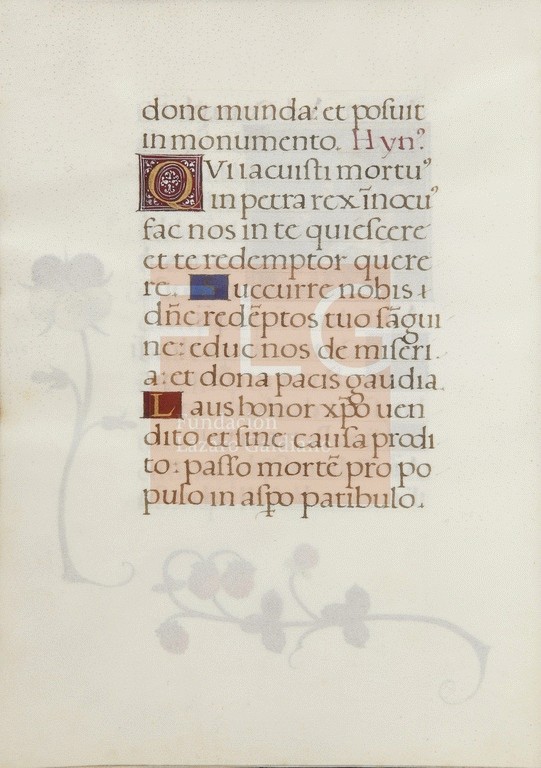 done munda: et posuit
in monumento. Hyn⁹
QVI iacuisti mortu⁹
in petra rex īnocu⁹
fac nos in te quiescere
et te redemptor quere
re. Succurre nobis
dn̄e redēptos tuo sāgui
ne: educ nos de miseri
a: et dona pacis gaudia.
Laus honor xp̄o uen
dito et sine causa prodi
to: passo mortē pro po
pulo in asp̲o patibulo.
FLG
Fundación
Lázaro Galdiano